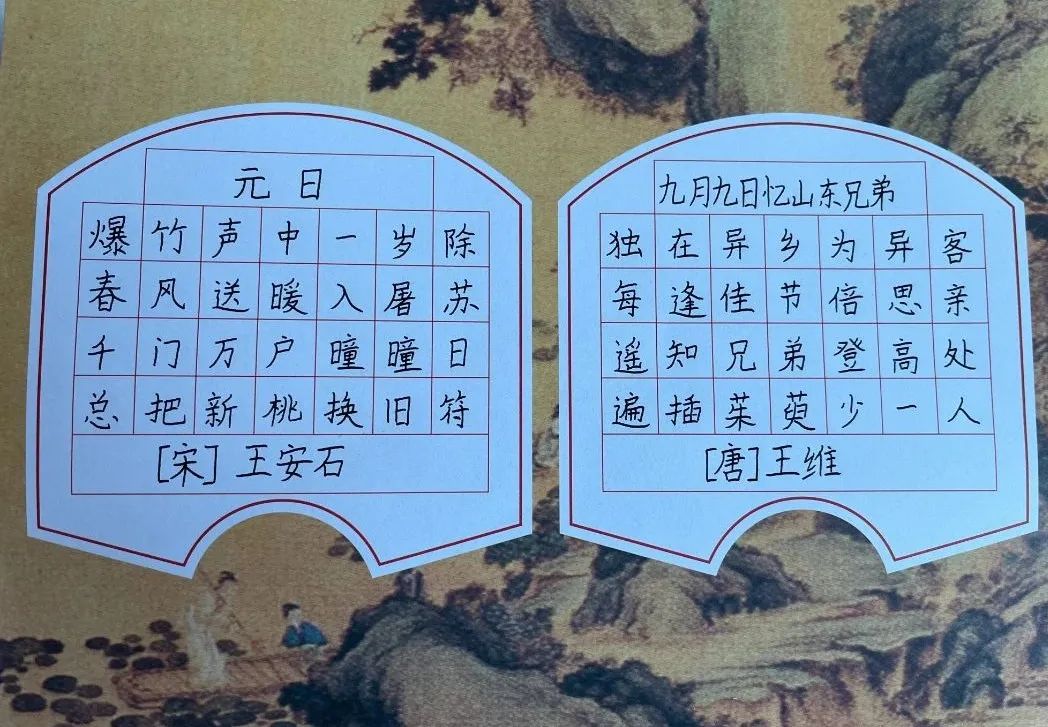 元日
爆竹声中一岁除
春风送暖入屠苏
千门万户曈曈日
总把新桃换旧符
[宋]王安石
九月九日忆山东兄弟
独在异乡为异客
每逢佳节倍思亲
遥知兄弟登高处
遍插茱萸少一人
[唐]王维